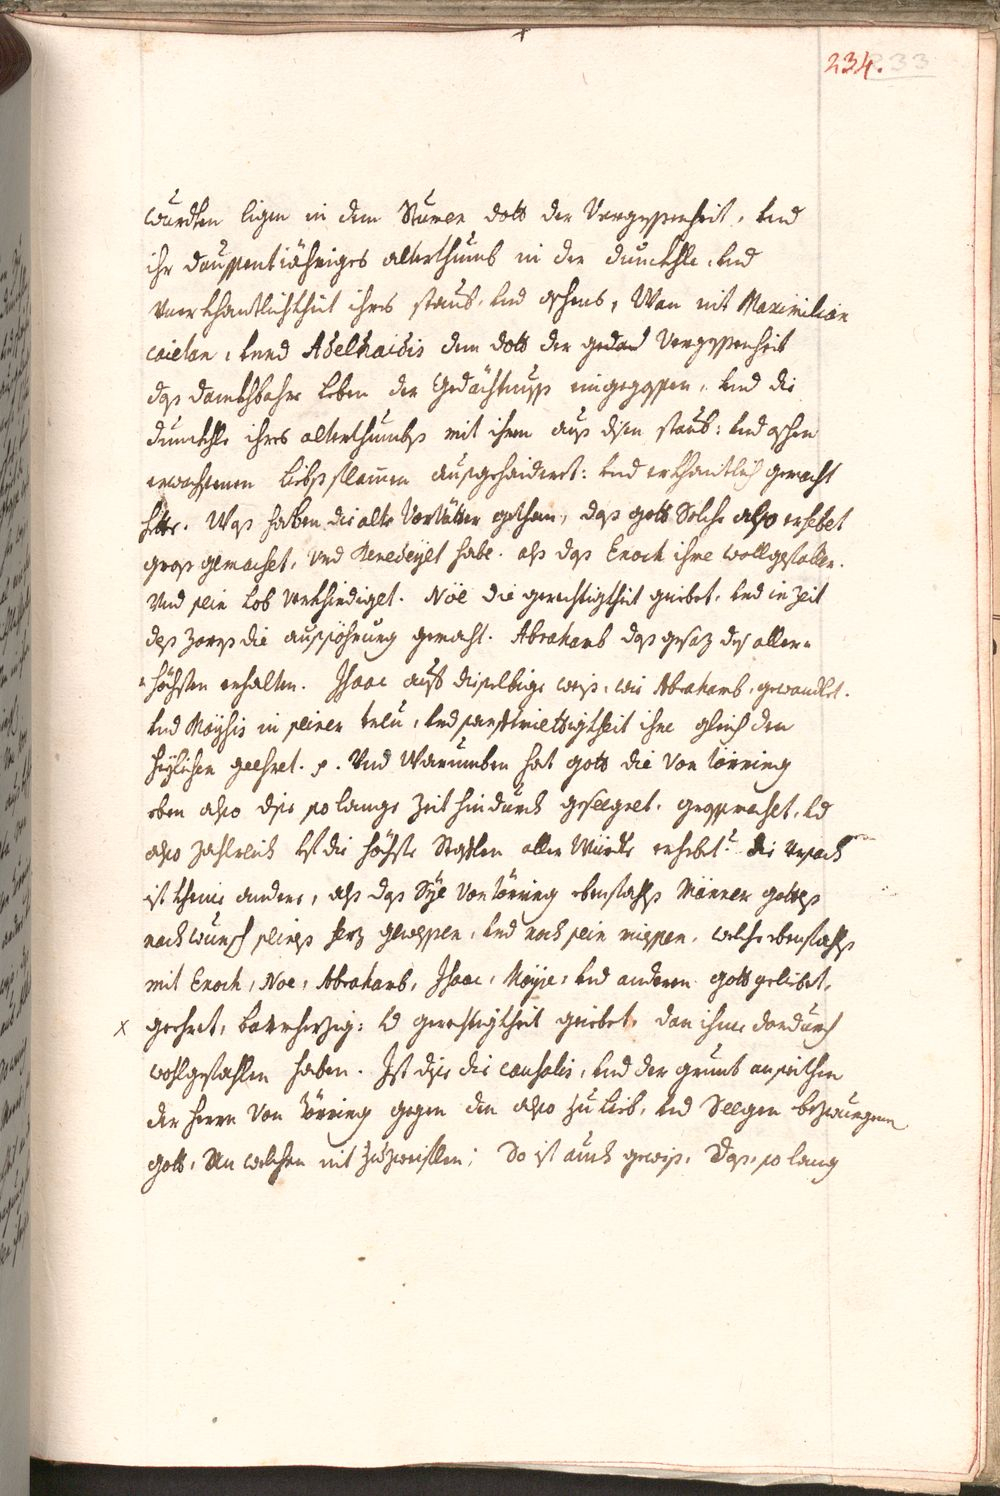 234. 233
wurdten ligen in dem Sturen dott der Vergessenheit, und
ihr daussentiähriges alterthumb in der dunckhle, und
Vnerkhantlichkheit ihres staub, und aschens, Wan nit Maximilian
caietan, unnd Adelhaidis dem dott der gedan Vergessenheit
das danckhbahre leben der Gedächtnuss eingegossen, und die
dunckhle ihres alterthumbs mit ihren aus disen staub: und aschen
erwachsenen liebs flammen ausgeheideret: und erkhantlich gemacht
hette. Was haben die alte Vorvätter gethan, das gott Solche also erhebet
gros gemachet, und Benedeyet habe. als das Enoch ihme wollgefallen.
Und sein Lob verkhindiget. Nöe die gerechtigkheit geiebet, und in Zeit
des zorns die aussöhnung gemacht. Abrahamb das gesaz des aller=
=höchsten erhalten. Isaac auf dieselbige weis, wie Abrahamb, gewandlet.
Und Moysis in seiner treu, und senfftmiettigkheit ihne gleich den
heyligen geehret. p. Und Warumben hat gott die Von Törring
eben also dise so lange Zeit hindurch geseegnet, grosgemachet, und
also zahlreich auf die höchste Staffen aller Würde erhebet? die Ursach
ist kheine andere, als das Sye Von Törring ebenfahls Männer gottes
nach wunsch seines herz gewessen, und nach sein wissen, welche ebenfahls
mit Enoch, Noe, Abrahamb, Isaac, Moyse, und anderen gott geliebet,
x geehret, barmherzig: und gerechtigkheit geiebet, dan ihme dardurch
wohlgefahlen haben. Ist dise die causalis, und der grund an seithen
der herrn Von Törring gegen den also zu lieb, und Seegen bezwungenen
gott, An welchen nit zu zweifflen; So ist auch gewis, Das, so lang